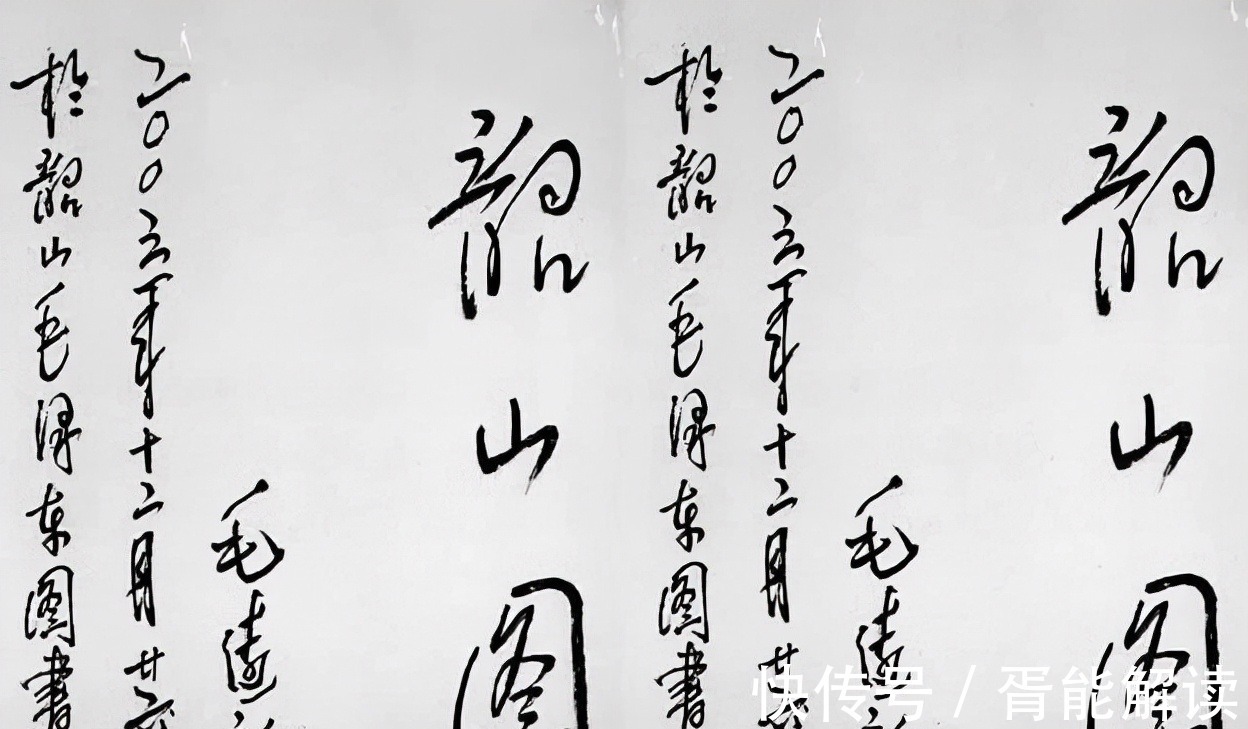 韶山图
毛
二〇〇六年十二月廿
於韶山毛泽东图書
韶山图
毛
二〇〇六年十二月廿
於韶山毛泽东图書
快传号 / 胥能解读